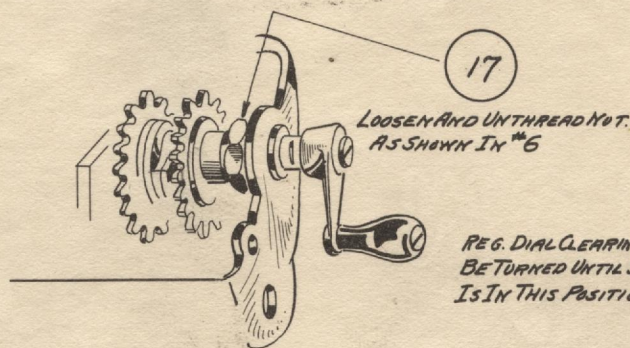 17
LOOSEN AND UNTHREAD NUT.
AS SHOWN IN #6
REG. DIAL CLEARIN
BE TURNED UNTIL
IS IN THIS POSITIO